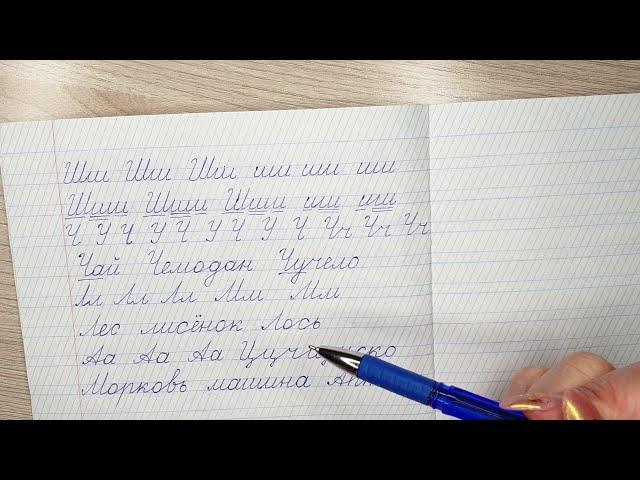 Ши Ши Ши ши ши ши
ши ши
Ч У Ч У Ч У Ч У Ч Чч Чч Чч
Чай Чемодан Чучело
Лл Лл Лл Мм Мм
Лес лисёнок Лось
Аа Аа Аа
Морковь машина